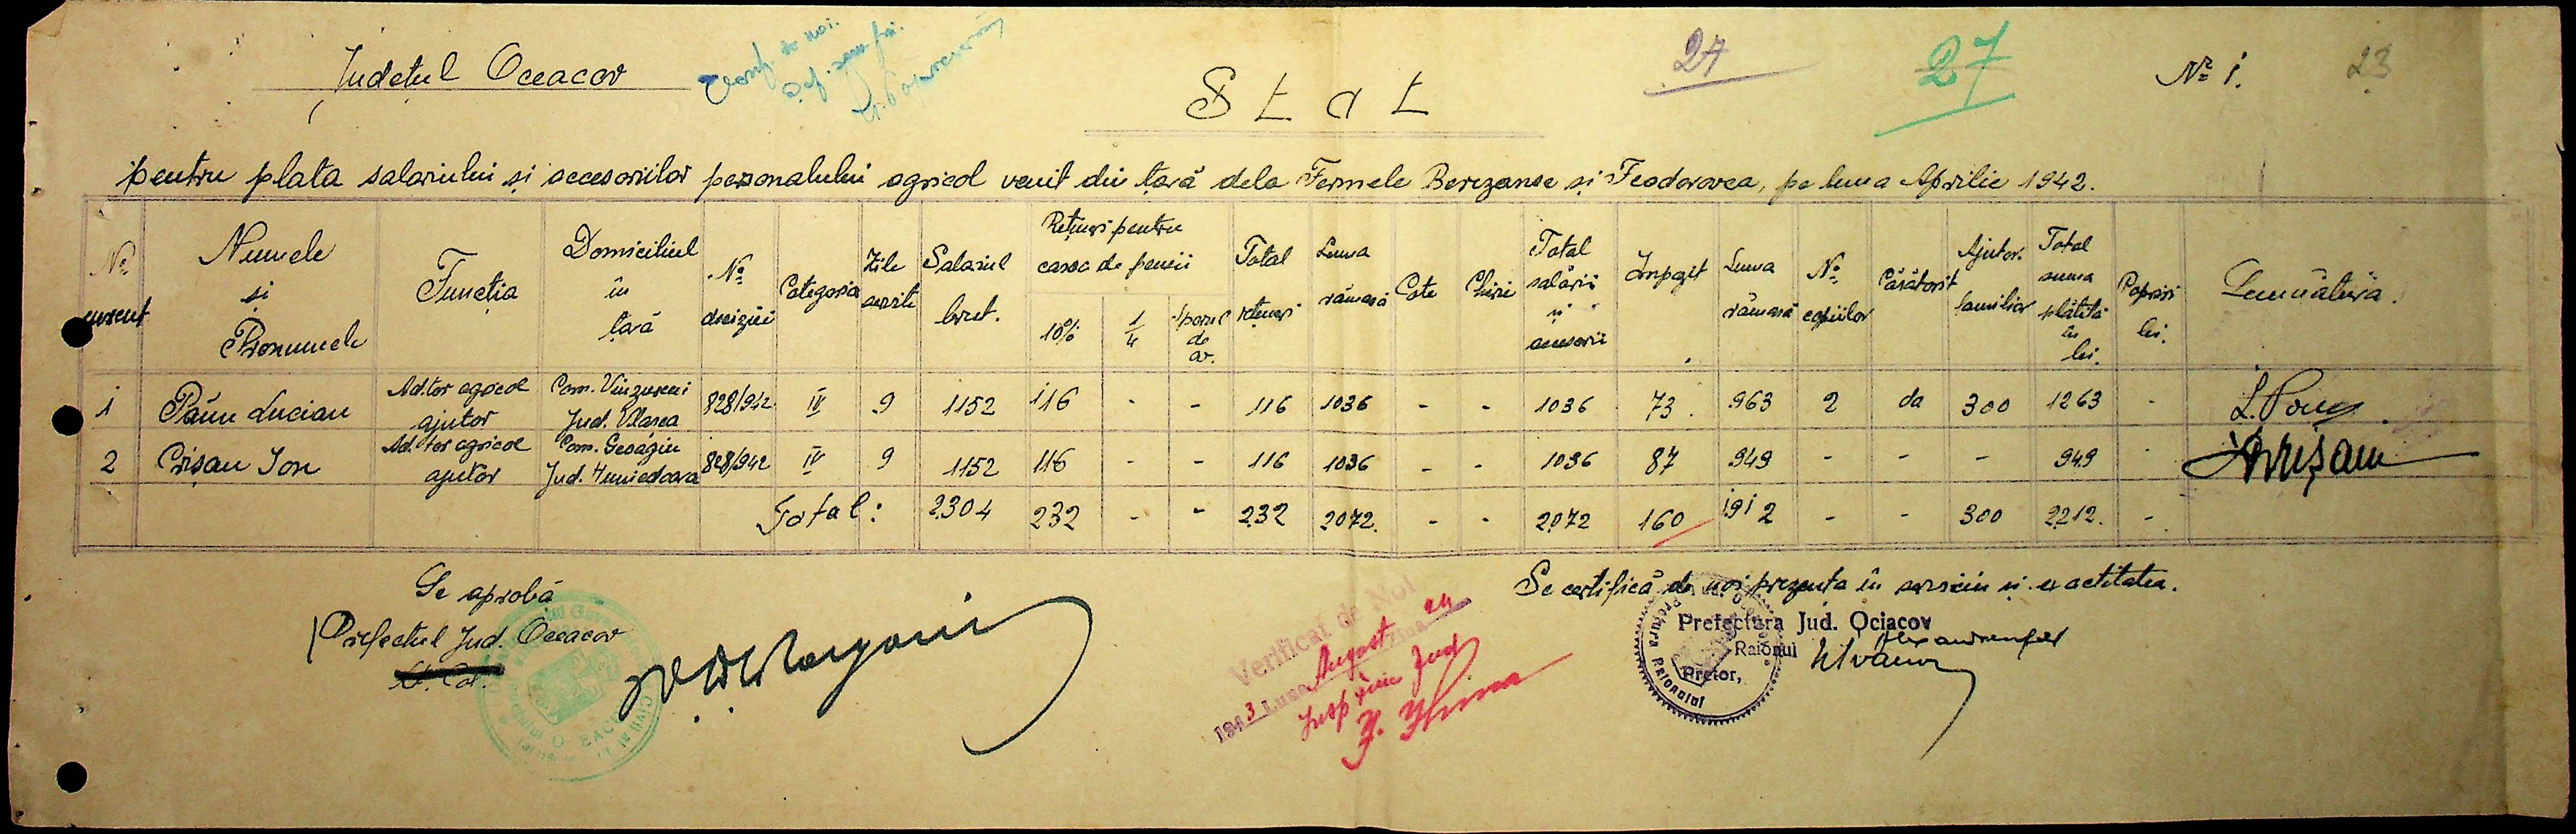 Județul Oceacov
Verif. de noi.
24
27
Nº 1.
23
Stat
pentru plata salariului și accesoriilor personalului agricol venit din țară dela Fermele Berezanse și Feodorovca, pe luna Aprilie 1942.
Nº curent | Numele și Pronumele | Funcția | Domiciliul în țară | Nº deciziei | Categoria | Zile servite | Salariul brut. | Rețineri pentru casa de pensii 10% | 1/4 | Sporul de av. | Total rețineri | Suma rămasă | Cote | Chirie | Total salarii și accesorii | Impozit | Suma rămasă | Nº copiilor | Căsătorit | Ajutor. familiar | Total suma plătită în lei. | Popriri lei. | Semnătura.
1 | Păun Lucian | Ad.tor agricol ajutor | Com. Jud. Vlasca | 828/942 | IV | 9 | 1152 | 116 | - | - | 116 | 1036 | - | - | 1036 | 73. | 963 | 2 | da | 300 | 1263 | - | L. Păun
2 | Crișan Ion | Ad.tor agricol ajutor | Com. Geoagiu Jud. Hunedoara | 828/942 | IV | 9 | 1152 | 116 | - | - | 116 | 1036 | - | - | 1036 | 87 | 949 | - | - | - | 949 | - | Crișan
Total: | 2304 | 232 | - | - | 232 | 2072. | - | - | 2072 | 160 | 1912 | - | - | 300 | 2212. | -
Se aprobă
Prefectul Jud. Oceacov
Verificat de Noi
1943 Luna August Ziua 24
Se certifică de noi prezența în serviciu și exactitatea.
Prefectura Jud. Ociacov
Raionul
Pretor,
Pretura Raionului